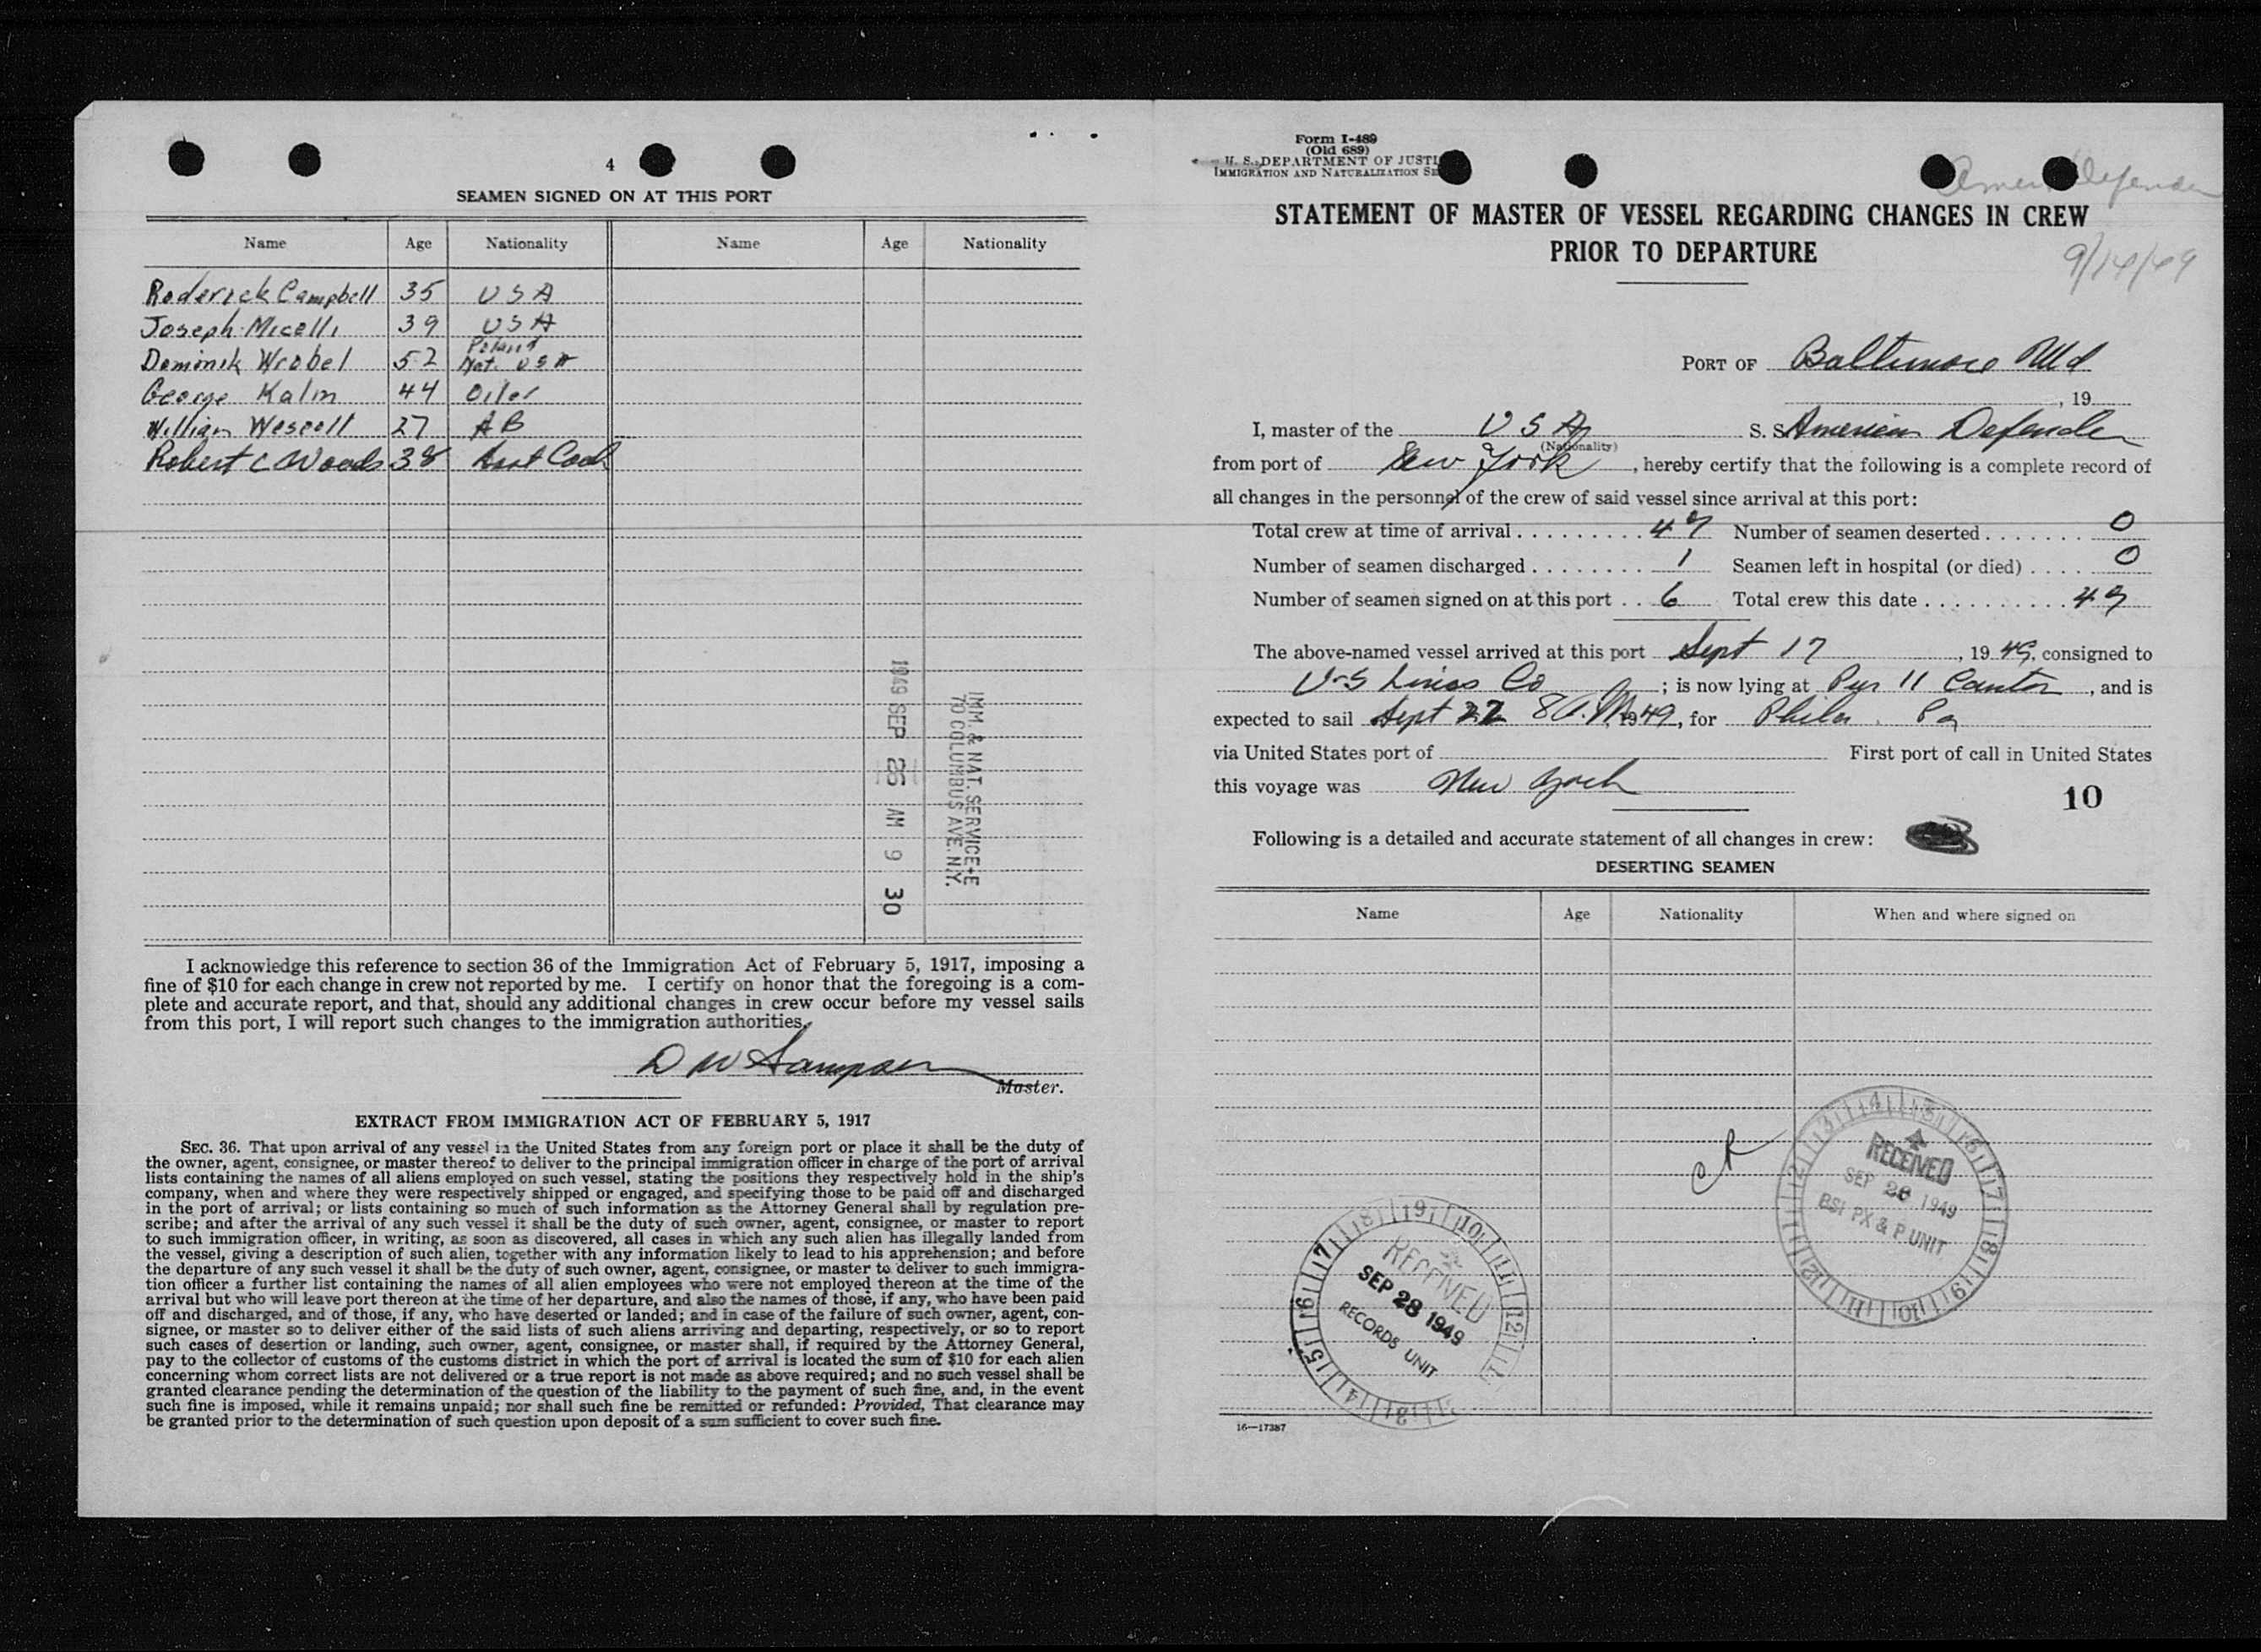 4
SEAMEN SIGNED ON AT THIS PORT
Name Age Nationality Name Age Nationality
Roderick Campbell 35 USA
Joseph Micelli 39 USA
Dominik Wrobel 52 Poland Nat. USA
George Kalin 44 Oiler
William Wescott 27 AB
Robert C Woods 38 Asst Cook
1949 SEP 26 AM 9 30
IMM. & NAT. SERVICE
70 COLUMBUS AVE. N.Y.
I acknowledge this reference to section 36 of the Immigration Act of February 5, 1917, imposing a
fine of $10 for each change in crew not reported by me. I certify on honor that the foregoing is a com-
plete and accurate report, and that, should any additional changes in crew occur before my vessel sails
from this port, I will report such changes to the immigration authorities.
D W Sampson
Master.
EXTRACT FROM IMMIGRATION ACT OF FEBRUARY 5, 1917
SEC. 36. That upon arrival of any vessel in the United States from any foreign port or place it shall be the duty of
the owner, agent, consignee, or master thereof to deliver to the principal immigration officer in charge of the port of arrival
lists containing the names of all aliens employed on such vessel, stating the positions they respectively hold in the ship's
company, when and where they were respectively shipped or engaged, and specifying those to be paid off and discharged
in the port of arrival; or lists containing so much of such information as the Attorney General shall by regulation pre-
scribe; and after the arrival of any such vessel it shall be the duty of such owner, agent, consignee, or master to report
to such immigration officer, in writing, as soon as discovered, all cases in which any such alien has illegally landed from
the vessel, giving a description of such alien, together with any information likely to lead to his apprehension; and before
the departure of any such vessel it shall be the duty of such owner, agent, consignee, or master to deliver to such immigra-
tion officer a further list containing the names of all alien employees who were not employed thereon at the time of the
arrival but who will leave port thereon at the time of her departure, and also the names of those, if any, who have been paid
off and discharged, and of those, if any, who have deserted or landed; and in case of the failure of such owner, agent, con-
signee, or master so to deliver either of the said lists of such aliens arriving and departing, respectively, or so to report
such cases of desertion or landing, such owner, agent, consignee, or master shall, if required by the Attorney General,
pay to the collector of customs of the customs district in which the port of arrival is located the sum of $10 for each alien
concerning whom correct lists are not delivered or a true report is not made as above required; and no such vessel shall be
granted clearance pending the determination of the question of the liability to the payment of such fine, and, in the event
such fine is imposed, while it remains unpaid; nor shall such fine be remitted or refunded: Provided, That clearance may
be granted prior to the determination of such question upon deposit of a sum sufficient to cover such fine.
Form I-489
(Old 689)
U. S. DEPARTMENT OF JUSTI
IMMIGRATION AND NATURALIZATION SE
Amer Defender
STATEMENT OF MASTER OF VESSEL REGARDING CHANGES IN CREW
PRIOR TO DEPARTURE
9/14/49
PORT OF Baltimore Md
, 19
I, master of the USA S. S. American Defender
(Nationality)
from port of New York, hereby certify that the following is a complete record of
all changes in the personnel of the crew of said vessel since arrival at this port:
Total crew at time of arrival Number of seamen deserted 0
Number of seamen discharged 1 Seamen left in hospital (or died) 0
Number of seamen signed on at this port 6 Total crew this date 49
The above-named vessel arrived at this port Sept 17, 1949, consigned to
U-S Lines Co; is now lying at Pier 11 Canton, and is
expected to sail Sept 22 8 A.M. 1949, for Phila. Pa
via United States port of First port of call in United States
this voyage was New York
10
Following is a detailed and accurate statement of all changes in crew:
DESERTING SEAMEN
Name Age Nationality When and where signed on
CR
RECEIVED
SEP 28 1949
BSI PX & P UNIT
RECEIVED
SEP 28 1949
RECORDS UNIT
16—17387